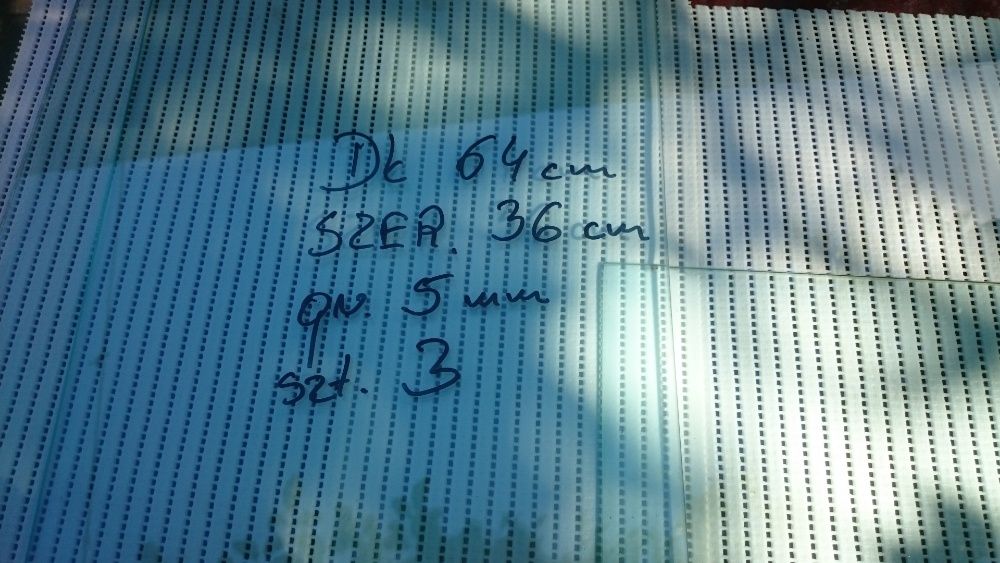 Dł 64 cm
SZER. 36 cm
gr. 5 mm
szt. 3